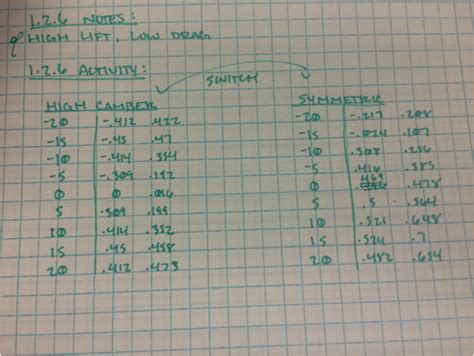 1.2.6 NOTES:
HIGH LIFT, LOW DRAG
1.2.6 ACTIVITY:
SWITCH
HIGH CAMBER SYMMETRIC
-20 -.412 .422 -20 -.217 .208
-15 -.45 .47 -15 -.024 .107
-10 -.414 .354 -10 .308 .236
-5 -.309 .192 -5 .416 .383
0 0 .046 0 .469 .478
5 .309 .199 5 .5 .564
10 .414 .352 10 .521 .648
15 .45 .458 15 .524 .7
20 .412 .473 20 .482 .654